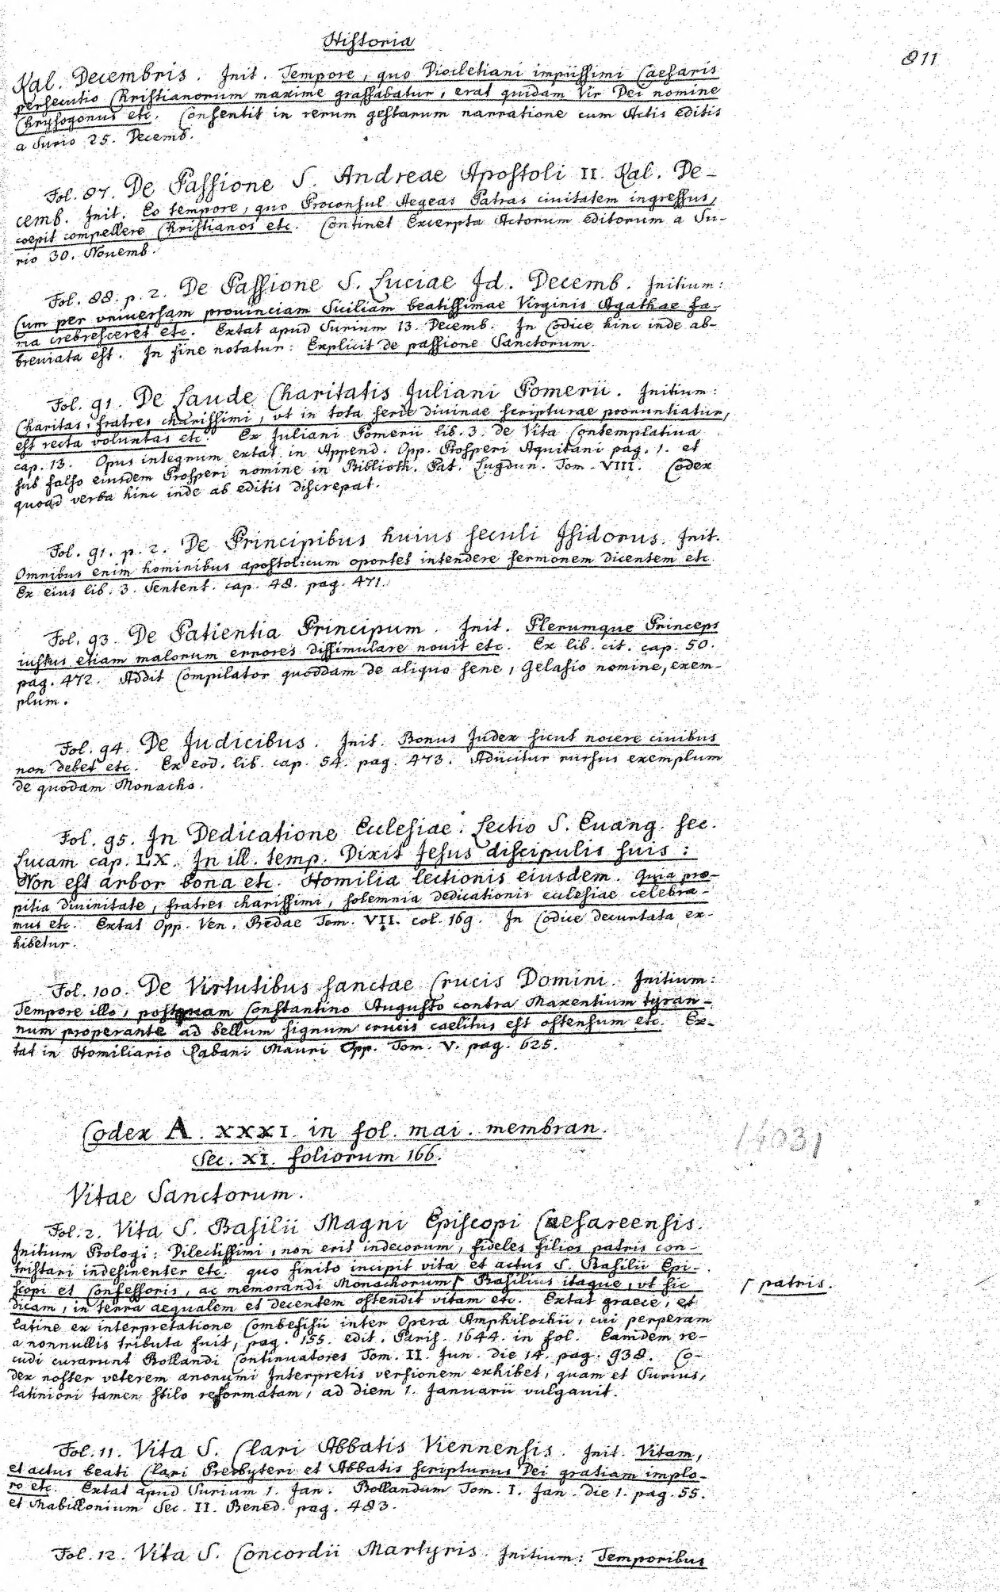 Historia
811
Kal. Decembris. Init. Tempore, quo Diocletiani impiissimi Caesaris
persecutio Christianorum maxime grassabatur, erat quidam Vir Dei nomine
Chrysogonus etc. Consentit in rerum gestarum narratione cum Actis editis
a Surio 25. Decemb.
Fol. 87. De Passione S. Andreae Apostoli II. Kal. De-
cemb. Init. Eo tempore, quo Proconsul Aegeas Patras ciuitatem ingressus,
coepit compellere Christianos etc. Continet Excerpta Actorum editorum a Su-
rio 30. Nouemb.
Fol. 88. p. 2. De Passione S. Luciae Id. Decemb. Initium:
Cum per vniuersam prouinciam Siciliam beatissimae Virginis Agathae fa-
ma crebresceret etc. Extat apud Surium 13. Decemb. In Codice hinc inde ab-
breuiata est. In fine notatur: Explicit de passione Sanctorum.
Fol. 91. De Laude Charitatis Juliani Pomerii. Initium:
Charitas, fratres charissimi, vt in tota serie diuinae scripturae pronuntiatur,
est recta voluntas etc. Ex Juliani Pomerii lib. 3. de Vita Contemplatiua
cap. 13. Opus integrum extat in Append. Opp. Prosperi Aquitani pag. 1. et
sub falso eiusdem Prosperi nomine in Biblioth. Pat. Lugdun. Tom. VIII. Codex
quoad verba hinc inde ab editis discrepat.
Fol. 91. p. 2. De Principibus huius seculi Isidorus. Init.
Omnibus enim hominibus apostolicum oportet intendere sermonem dicentem etc.
Ex eius lib. 3. Sentent. cap. 48. pag. 471.
Fol. 93. De Patientia Principum. Init. Plerumque Princeps
iustus etiam malorum errores dissimulare nouit etc. Ex lib. cit. cap. 50.
pag. 472. Addit Compilator quoddam de aliquo sene, Gelasio nomine, exem-
plum.
Fol. 94. De Judicibus. Init. Bonus Judex sicut nocere ciuibus
non debet etc. Ex eod. lib. cap. 54. pag. 473. Adiicitur rursus exemplum
de quodam Monacho.
Fol. 95. In Dedicatione Ecclesiae. Lectio S. Euang. sec.
Lucam cap. LX. In ill. temp. Dixit Jesus discipulis suis:
Non est arbor bona etc. Homilia lectionis eiusdem. Quia pro-
pitia diuinitate, fratres charissimi, solemnia dedicationis ecclesiae celebra-
mus etc. Extat Opp. Ven. Bedae Tom. VII. col. 169. In Codice decurtata ex-
hibetur.
Fol. 100. De Virtutibus sanctae Crucis Domini. Initium:
Tempore illo, postquam Constantino Augusto contra Maxentium tyran-
num properante ad bellum signum crucis caelitus est ostensum etc. Ex-
tat in Homiliario Rabani Mauri Opp. Tom. V. pag. 625.
Codex A. XXXI. in fol. mai. membran.
14031
Sec. XI. foliorum 166.
Vitae Sanctorum.
Fol. 2. Vita S. Basilii Magni Episcopi Caesareensis.
Initium Prologi: Dilectissimi, non erit indecorum, fideles filios patris con-
tristari indesinenter etc. quo finito incipit vita et actus S. Basilii Epi-
scopi et Confessoris, ac memorandi Monachorum ſ Basilius itaque, vt sic
ſ patris.
dicam, in terra aequalem et decentem ostendit vitam etc. Extat graece, et
latine ex interpretatione Combefisii inter Opera Amphilochii, cui perperam
a nonnullis tributa fuit, pag. 155. edit. Paris. 1644. in fol. Eamdem re-
cudi curarunt Bollandi Continuatores Tom. II. Jun. die 14. pag. 938. Co-
dex noster veterem anonymi Interpretis versionem exhibet, quam et Surius,
latiniori tamen stilo reformatam, ad diem 1. Januarii vulgauit.
Fol. 11. Vita S. Clari Abbatis Viennensis. Init. Vitam,
et actus beati Clari Presbyteri et Abbatis scripturus Dei gratiam implo-
ro etc. Extat apud Surium 1. Jan. Bollandum Tom. I. Jan. die 1. pag. 55.
et Mabillonium Sec. II. Bened. pag. 483.
Fol. 12. Vita S. Concordii Martyris. Initium: Temporibus